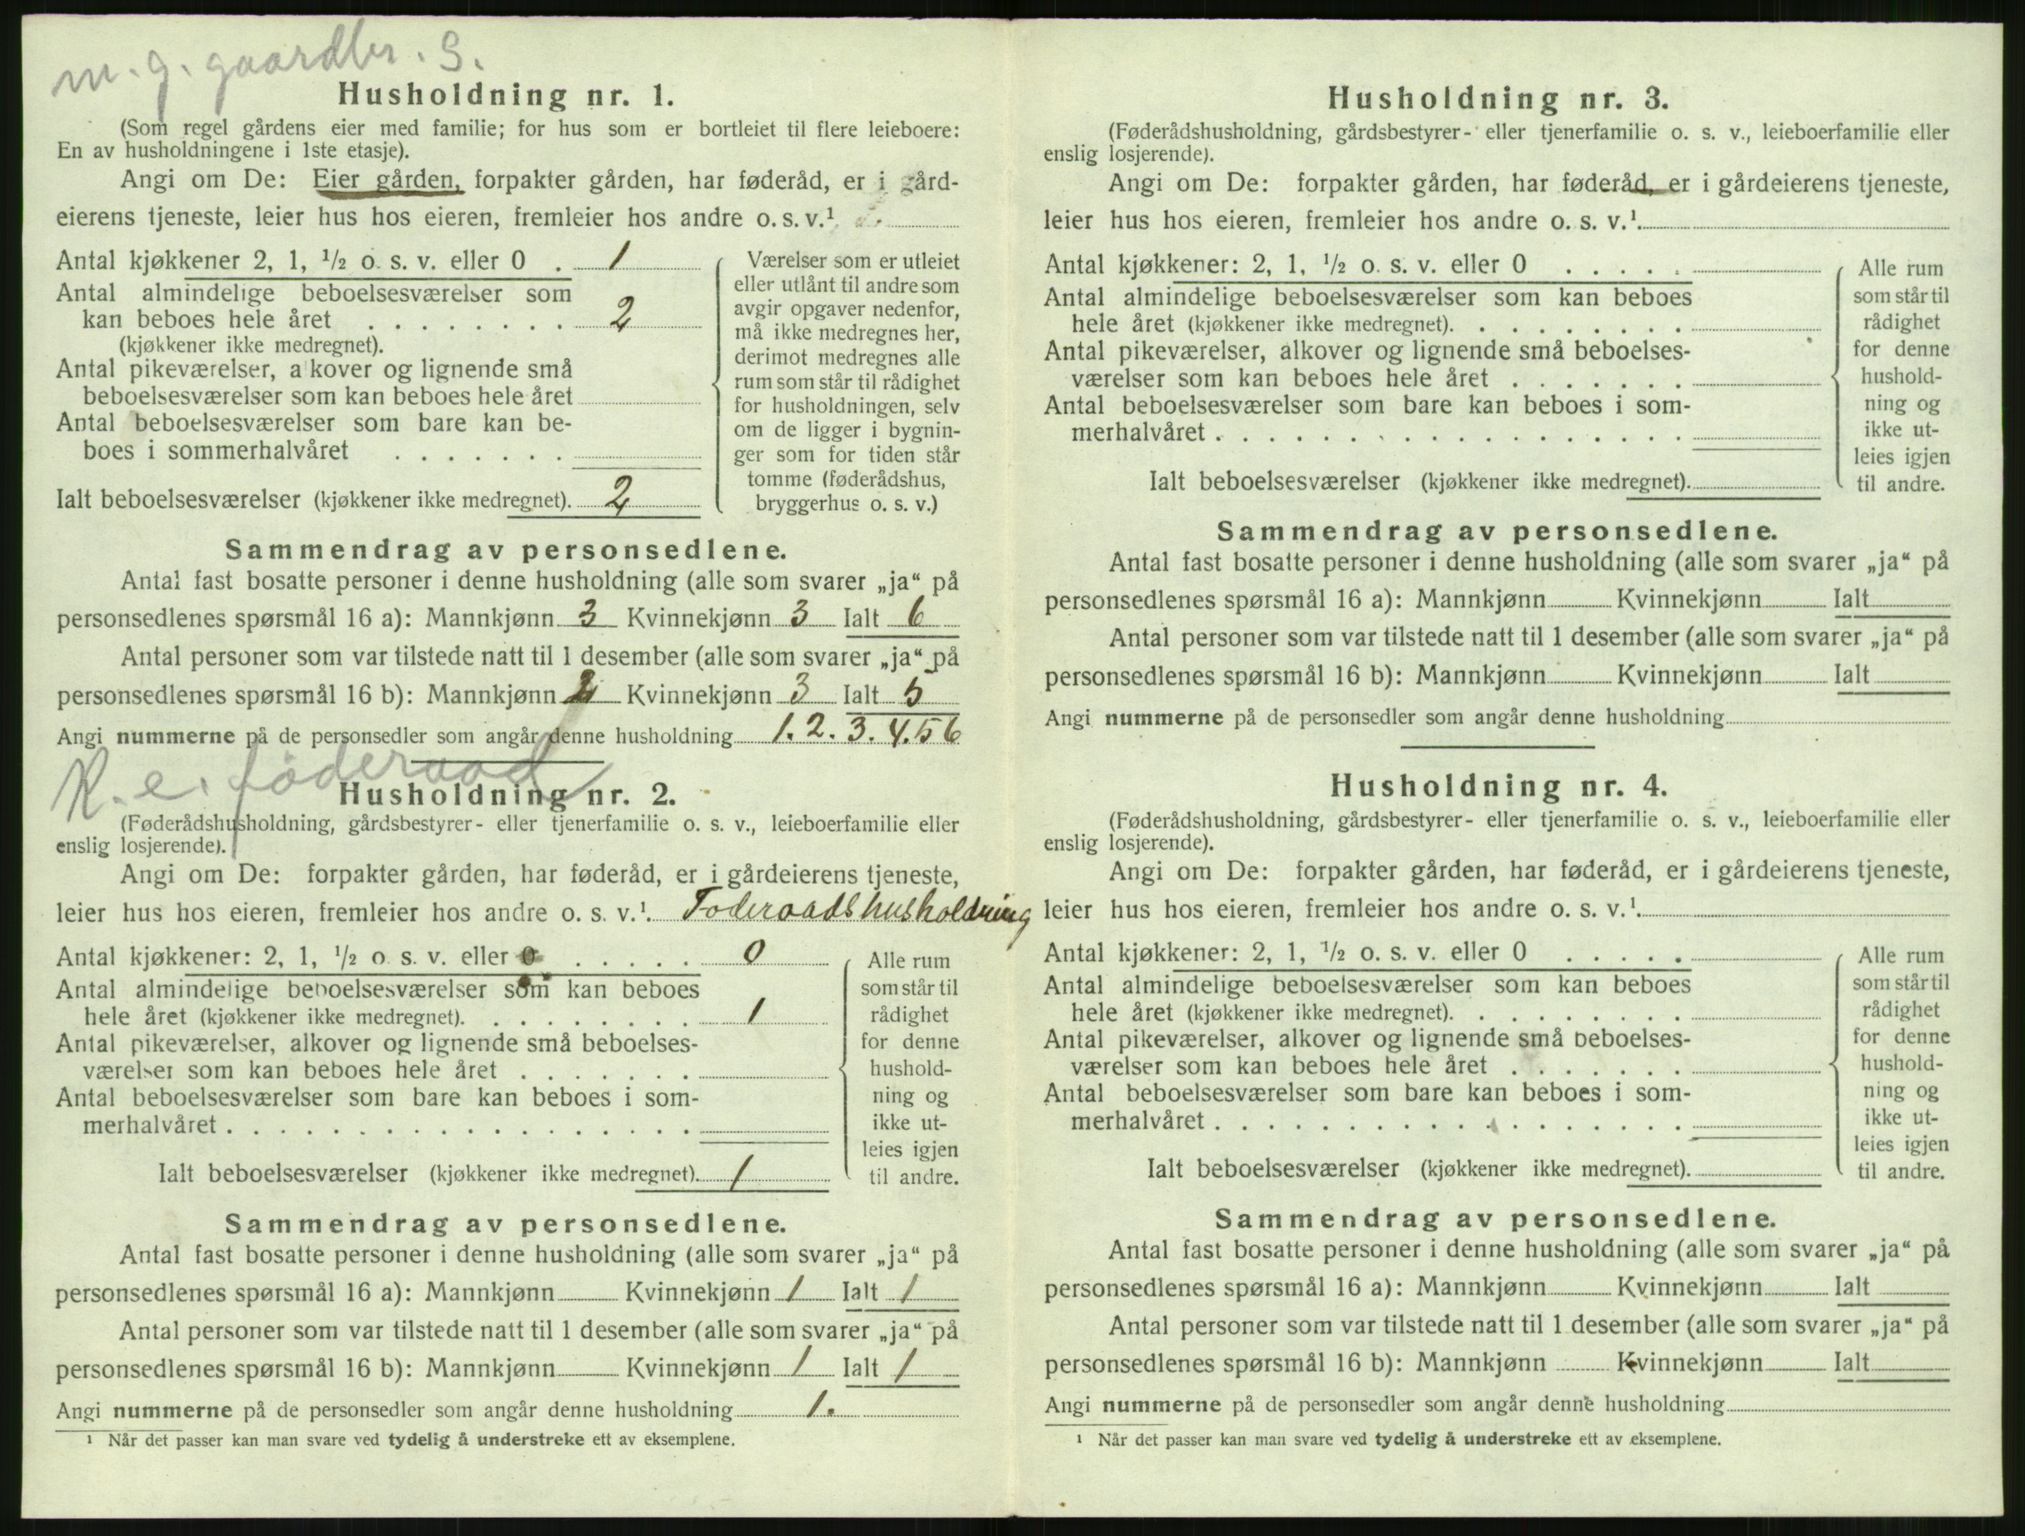 m. g. gaardbr. S.
Husholdning nr. 1.
(Som regel gårdens eier med familie; for hus som er bortleiet til flere leieboere:
En av husholdningene i 1ste etasje).
Angi om De: Eier gården, forpakter gården, har føderåd, er i gård-
eierens tjeneste, leier hus hos eieren, fremleier hos andre o. s. v.¹
Antal kjøkkener 2, 1, ½ o. s. v. eller 0 . 1
Antal almindelige beboelsesværelser som
kan beboes hele året . . . . . . . . 2
(kjøkkener ikke medregnet).
Antal pikeværelser, a kover og lignende små
beboelsesværelser som kan beboes hele året
Antal beboelsesværelser som bare kan be-
boes i sommerhalvåret . . . . . . .
Ialt beboelsesværelser (kjøkkener ikke medregnet). 2
Værelser som er utleiet
eller utlånt til andre som
avgir opgaver nedenfor,
må ikke medregnes her,
derimot medregnes alle
rum som står til rådighet
for husholdningen, selv
om de ligger i bygnin-
ger som for tiden står
tomme (føderådshus,
bryggerhus o. s. v.)
Sammendrag av personsedlene.
Antal fast bosatte personer i denne husholdning (alle som svarer „ja“ på
personsedlenes spørsmål 16 a): Mannkjønn 3 Kvinnekjønn 3 Ialt 6
Antal personer som var tilstede natt til 1 desember (alle som svarer „ja“ på
personsedlenes spørsmål 16 b): Mannkjønn 2 Kvinnekjønn 3 Ialt 5
Angi nummerne på de personsedler som angår denne husholdning 1. 2. 3. 4. 5 6
K. e. føderaad
Husholdning nr. 2.
(Føderådshusholdning, gårdsbestyrer- eller tjenerfamilie o. s. v., leieboerfamilie eller
enslig losjerende).
Angi om De: forpakter gården, har føderåd, er i gårdeierens tjeneste,
leier hus hos eieren, fremleier hos andre o. s. v.¹. Foderaadshusholdning
Antal kjøkkener: 2, 1, ½ o. s. v. eller 0 . . . . . 0
Antal almindelige beboelsesværelser som kan beboes
hele året (kjøkkener ikke medregnet). . . . . . . . . 1
Antal pikeværelser, alkover og lignende små beboelses-
værelser som kan beboes hele året . . . . . . .
Antal beboelsesværelser som bare kan beboes i som-
merhalvåret . . . . . . . . . . . . . . . . . .
Ialt beboelsesværelser (kjøkkener ikke medregnet). 1
Alle rum
som står til
rådighet
for denne
hushold-
ning og
ikke ut-
leies igjen
til andre.
Sammendrag av personsedlene.
Antal fast bosatte personer i denne husholdning (alle som svarer „ja“ på
personsedlenes spørsmål 16 a): Mannkjønn Kvinnekjønn 1 Ialt 1
Antal personer som var tilstede natt til 1 desember (alle som svarer „ja“ på
personsedlenes spørsmål 16 b): Mannkjønn Kvinnekjønn 1 Ialt 1
Angi nummerne på de personsedler som angår denne husholdning 1.
¹ Når det passer kan man svare ved tydelig å understreke ett av eksemplene.
Husholdning nr. 3.
(Føderådshusholdning, gårdsbestyrer- eller tjenerfamilie o. s. v., leieboerfamilie eller
enslig losjerende).
Angi om De: forpakter gården, har føderåd, er i gårdeierens tjeneste,
leier hus hos eieren, fremleier hos andre o. s. v.¹.
Antal kjøkkener: 2, 1, ½ o. s. v. eller 0 . . . . .
Antal almindelige beboelsesværelser som kan beboes
hele året (kjøkkener ikke medregnet). . . . . . . . .
Antal pikeværelser, alkover og lignende små beboelses-
værelser som kan beboes hele året . . . . . . .
Antal beboelsesværelser som bare kan beboes i som-
merhalvåret . . . . . . . . . . . . . . . . . .
Ialt beboelsesværelser (kjøkkener ikke medregnet).
Alle rum
som står til
rådighet
for denne
hushold-
ning og
ikke ut-
leies igjen
til andre.
Sammendrag av personsedlene.
Antal fast bosatte personer i denne husholdning (alle som svarer „ja“ på
personsedlenes spørsmål 16 a): Mannkjønn Kvinnekjønn Ialt
Antal personer som var tilstede natt til 1 desember (alle som svarer „ja“ på
personsedlenes spørsmål 16 b): Mannkjønn Kvinnekjønn Ialt
Angi nummerne på de personsedler som angår denne husholdning
Husholdning nr. 4.
(Føderådshusholdning, gårdsbestyrer- eller tjenerfamilie o. s. v., leieboerfamilie eller
enslig losjerende).
Angi om De: forpakter gården, har føderåd, er i gårdeierens tjeneste,
leier hus hos eieren, fremleier hos andre o. s. v.¹.
Antal kjøkkener: 2, 1, ½ o. s. v. eller 0 . . . . .
Antal almindelige beboelsesværelser som kan beboes
hele året (kjøkkener ikke medregnet). . . . . . . . .
Antal pikeværelser, alkover og lignende små beboelses-
værelser som kan beboes hele året . . . . . . .
Antal beboelsesværelser som bare kan beboes i som-
merhalvåret . . . . . . . . . . . . . . . . . .
Ialt beboelsesværelser (kjøkkener ikke medregnet).
Alle rum
som står til
rådighet
for denne
hushold-
ning og
ikke ut-
leies igjen
til andre.
Sammendrag av personsedlene.
Antal fast bosatte personer i denne husholdning (alle som svarer „ja“ på
personsedlenes spørsmål 16 a): Mannkjønn Kvinnekjønn Ialt
Antal personer som var tilstede natt til 1 desember (alle som svarer „ja“ på
personsedlenes spørsmål 16 b): Mannkjønn Kvinnekjønn Ialt
Angi nummerne på de personsedler som angår denne husholdning
¹ Når det passer kan man svare ved tydelig å understreke ett av eksemplene.